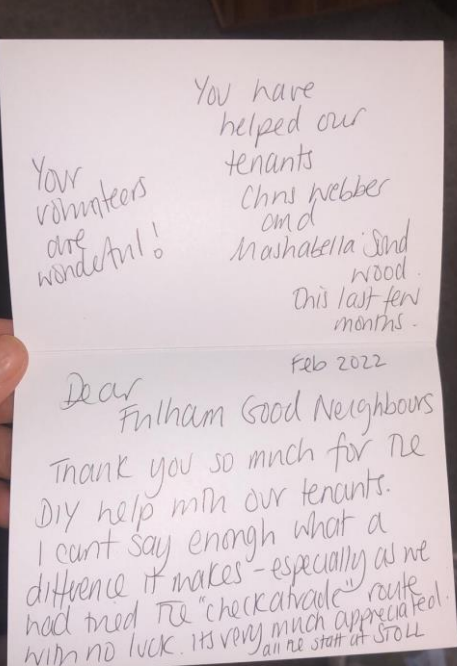 You have
helped our
tenants
Chris Webber
and
Mashabella
wood.
This last few
months.
Your
volunteers
are
wonderful!
Feb 2022
Dear
Fulham Good Neighbours
Thank you so much for the
DIY help with our tenants.
I cant say enough what a
difference it makes - especially as we
had tried the "checkatrade" route
with no luck. its very much appreciated.
all the staff at STOLL